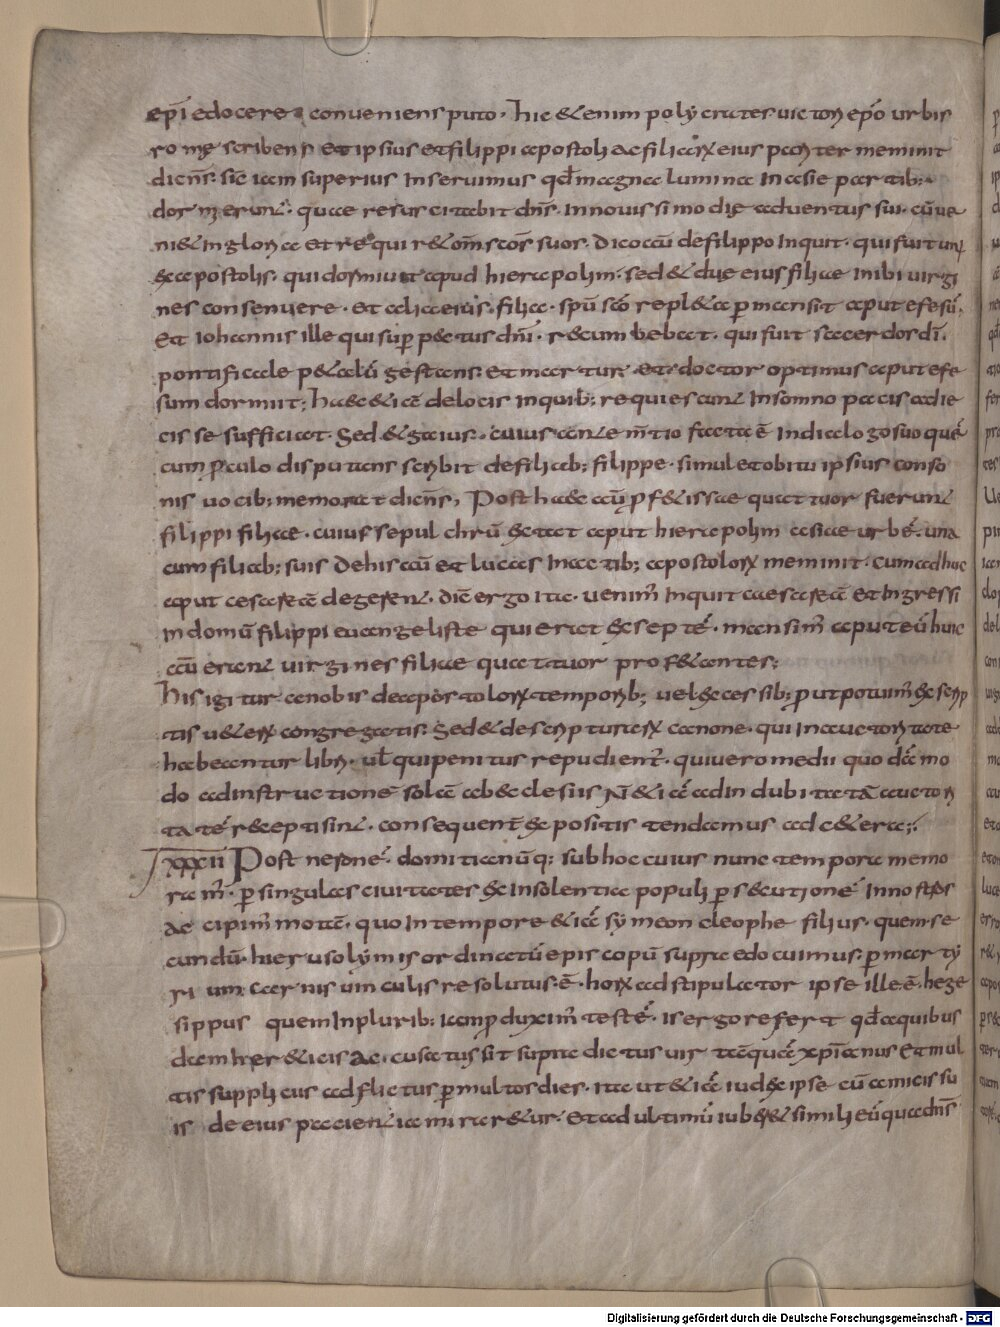 epī edocere conveniens puto · hic & enim polycrates victori epō urbis
rome scribens et ipsius et filippi apostoli ac filiarx eius pariter meminit
dicens̄. sic iam superius Inseruimus qd̄ magna lumina In asie partib;
dormierunt · quae resurcitabit dns̄ · In novissimo die adventus sui · cū ve
ni& In gloria et requir& om̄s sc̄os suos. Dico aū de filippo Inquit · qui fuit un;
& apostolis · qui dormivit apud hierapolim · sed & duę eius filiae inibi virgi
nes consenuere · et alia eius filia · spū scō repl&a p mansit aput efesū;
Et Iohannis ille qui sup pectus dn̄i · recumbebat · qui fuit sacerdos dī.
pontificale p&alū gestans et martur et doctor optimus aput efe
sum dormiit; haec & iā de locis inquib; requiescunt In somno pacis a die
cis se sufficiat · Sed & gaius · cuius ante m̄tio facta ē In dialogo suo quē
cum pculo disputans scribit de filiab; filippe · simul et obitu ipsius conso
nis vocib; memorat dicens̄, Post haec aū pf&issae quattuor fuerunt
filippi filiae · cuius sepulchrū &at aput hierapolim asiae urbē · una
cum filiab; suis De his aū et lucas In actib; apostolorx meminit · cum adhuc
aput cesaream degerent · dic̄ ergo ita · venim' Inquit caesaream et Ingressi
In domū filippi euangeliste qui erat &septē · mansim' aput eū huic
aū erant virgines filiae quattuor prof&antes;
his igitur a nobis de apostolorx temporib; vel &
tis v&erx congregatis Sed & de scripturarx canone · qui In auctoritate
habeantur libri · ul̄ qui penitus repudient' · qui vero medii quo dā mo
do ad instructionē solā ab aeclesiis N̄ & iā ad indubitatā auctori
tatē r&eptisint · consequent' & positis tendamus ad c&era;
XXXII Post neronē · domitianūq; sub hoc cuius nunc tempora memo
ra m̄ · p singulas civitates & Insolentia populi psecutionē In nostros
ac cipim' motā · quo In tempore & iā symeon cleophe filius · quem se
cundū hierusolymis ordinatū episcopū supra edocuimus · p marty
rium carnis vinculis resolutus ē · horx adstipulator ipse ille ē hege
sippus quem In plurib; iam pduxim' testē · Is ergo refert qd̄ a quibus
dam her&icis ac · cusatus sit supra dictus vir tāquā xp̄ianus Et mul
tis suppliciis adflictus p multos dies · Ita ut & iā iud& ipse cū amicis su
is de eius pacientia mirar&ur · Et ad ultimū iub& simili eū qua dn̄s
Digitalisierung gefördert durch die Deutsche Forschungsgemeinschaft - DFG